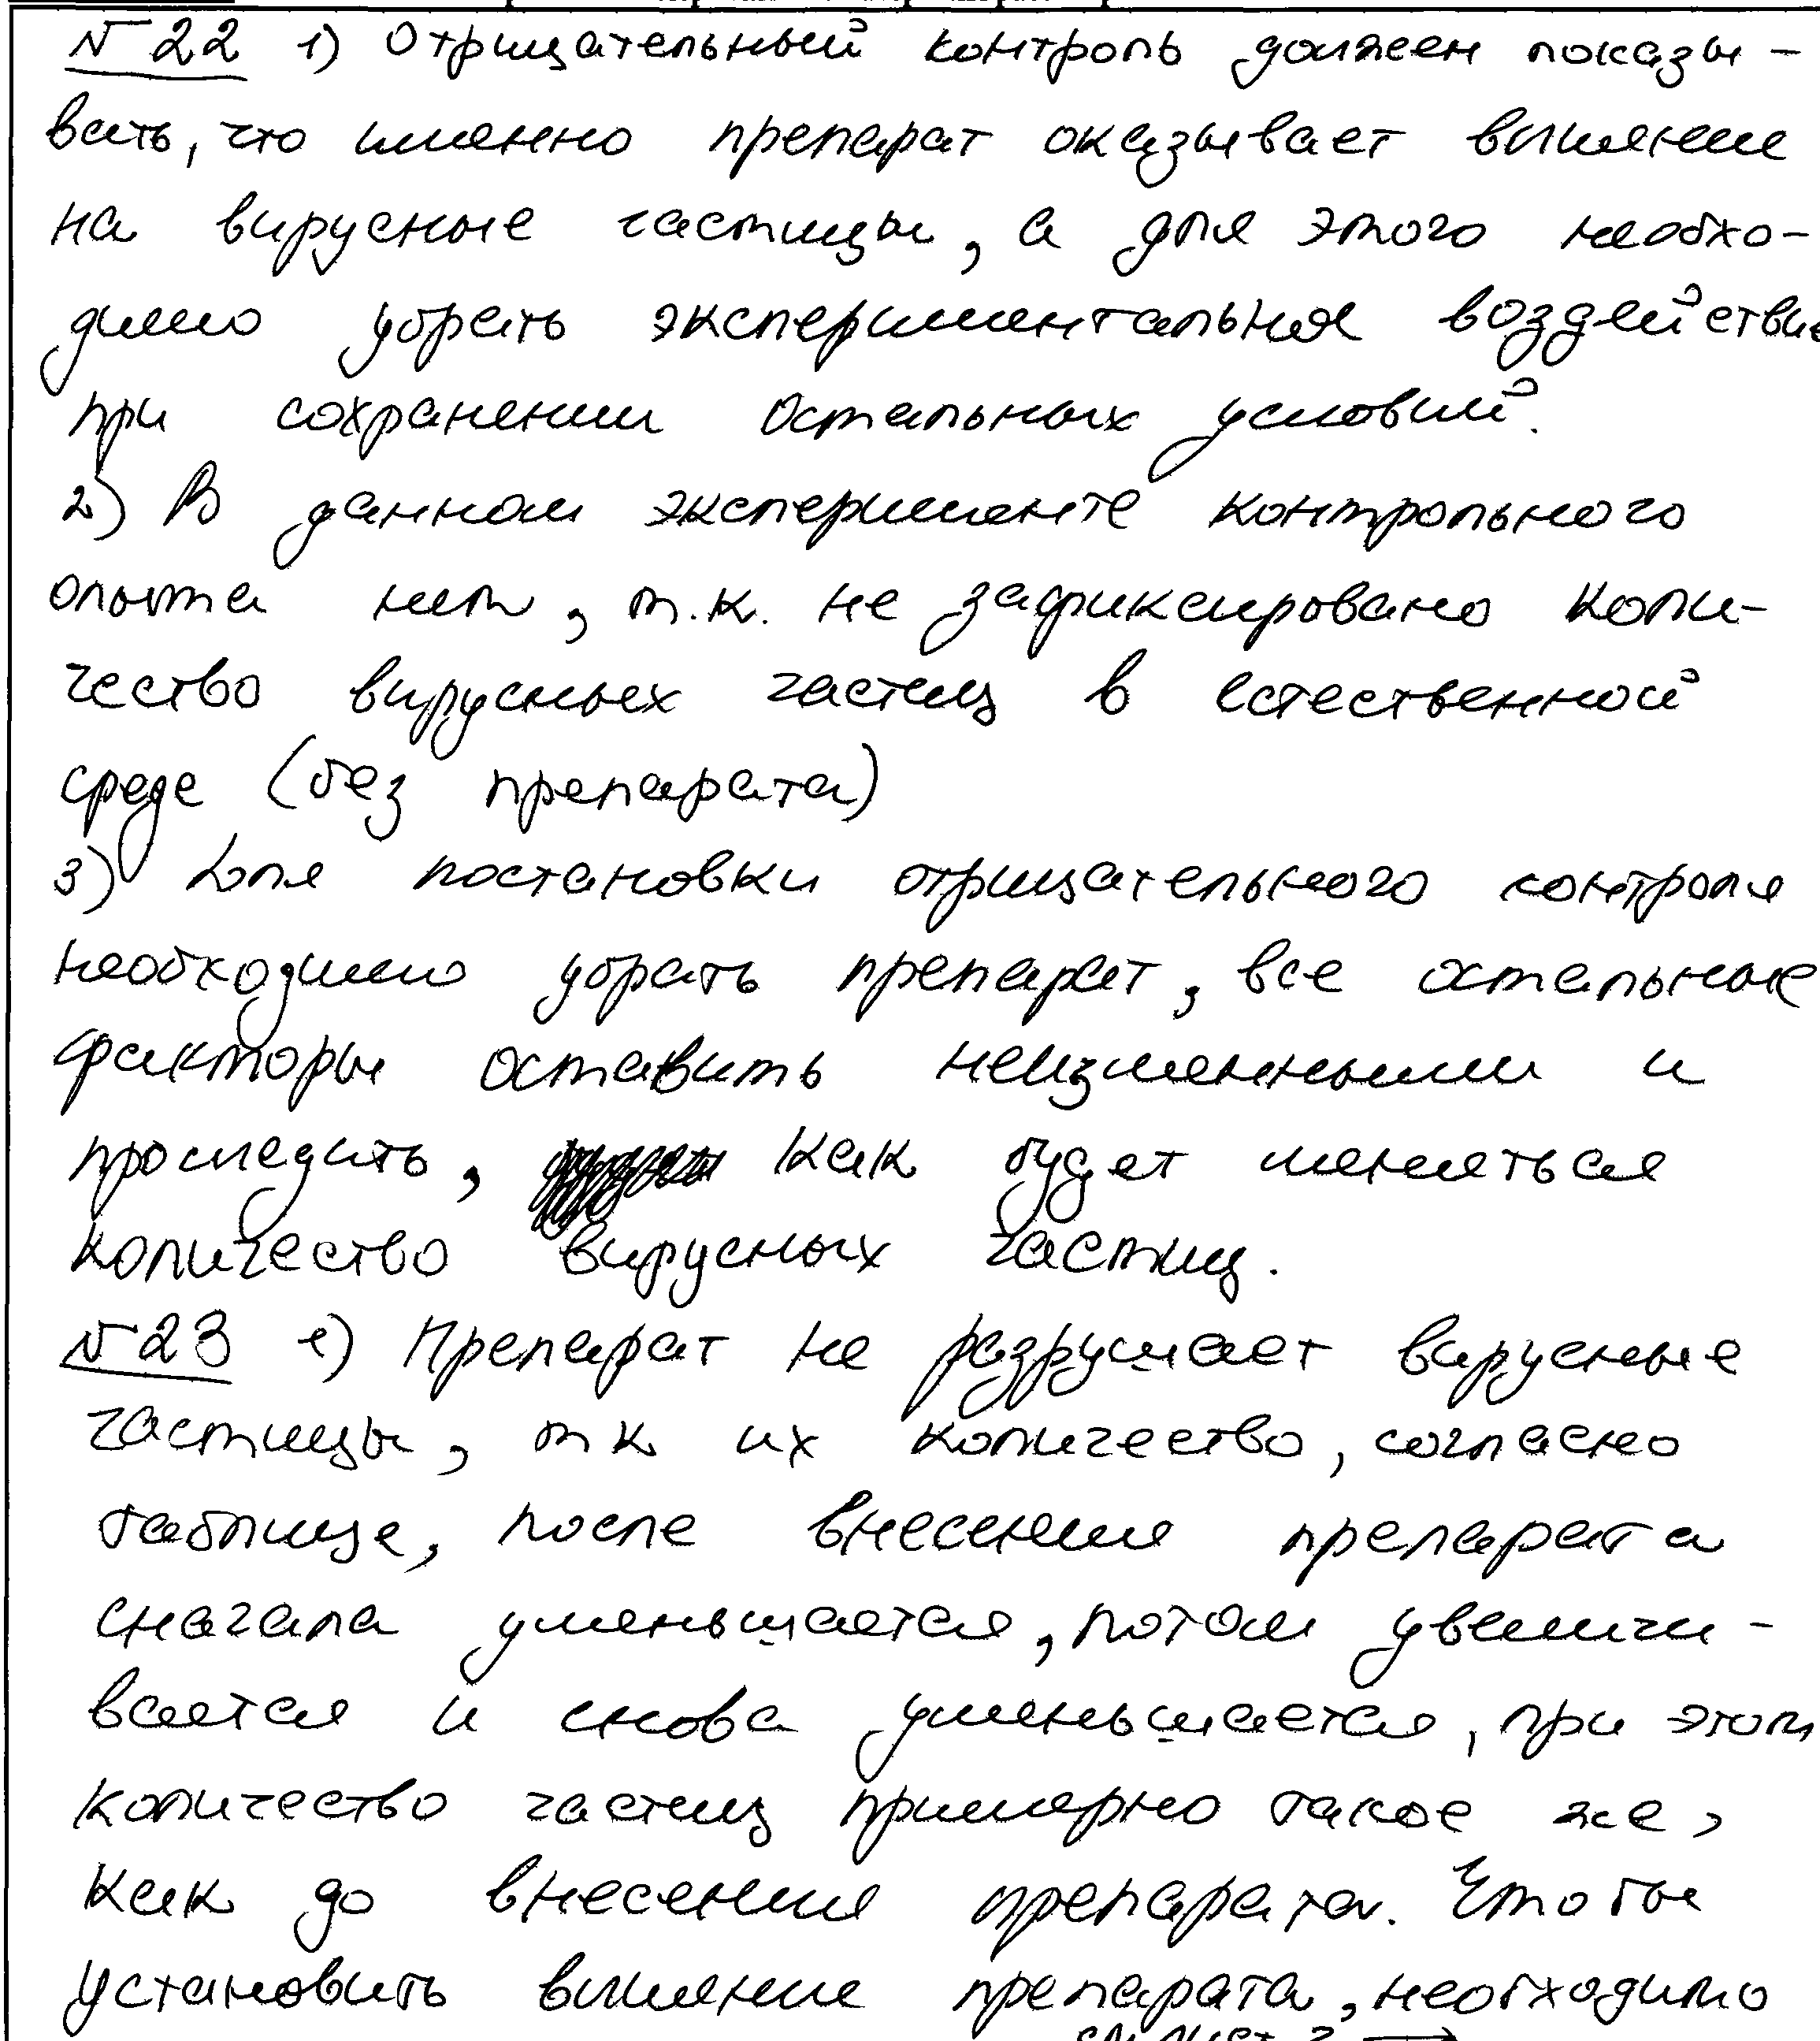 №22 1) Отрицательный контроль должен показы-
вать, что именно препарат оказывает влияние
на вирусные частицы, а для этого необхо-
димо убрать экспериментальное воздействие
при сохранении остальных условий.
2) В данном эксперименте контрольного
опыта нет, т.к. не зафиксировано коли-
чество вирусных частиц в естественной
среде (без препарата)
3) Для постановки отрицательного контроля
необходимо убрать препарат, все остальные
факторы оставить неизменными и
проследить, как будет меняться
количество вирусных частиц.
№23 1) Препарат не разрушает вирусные
частицы, тк их количество, согласно
таблице, после внесения препарата
сначала уменьшается, потом увеличи-
вается и снова уменьшается, при этом
количество частиц примерно такое же,
как до внесения препарата. Чтобы
установить влияние препарата, необходимо